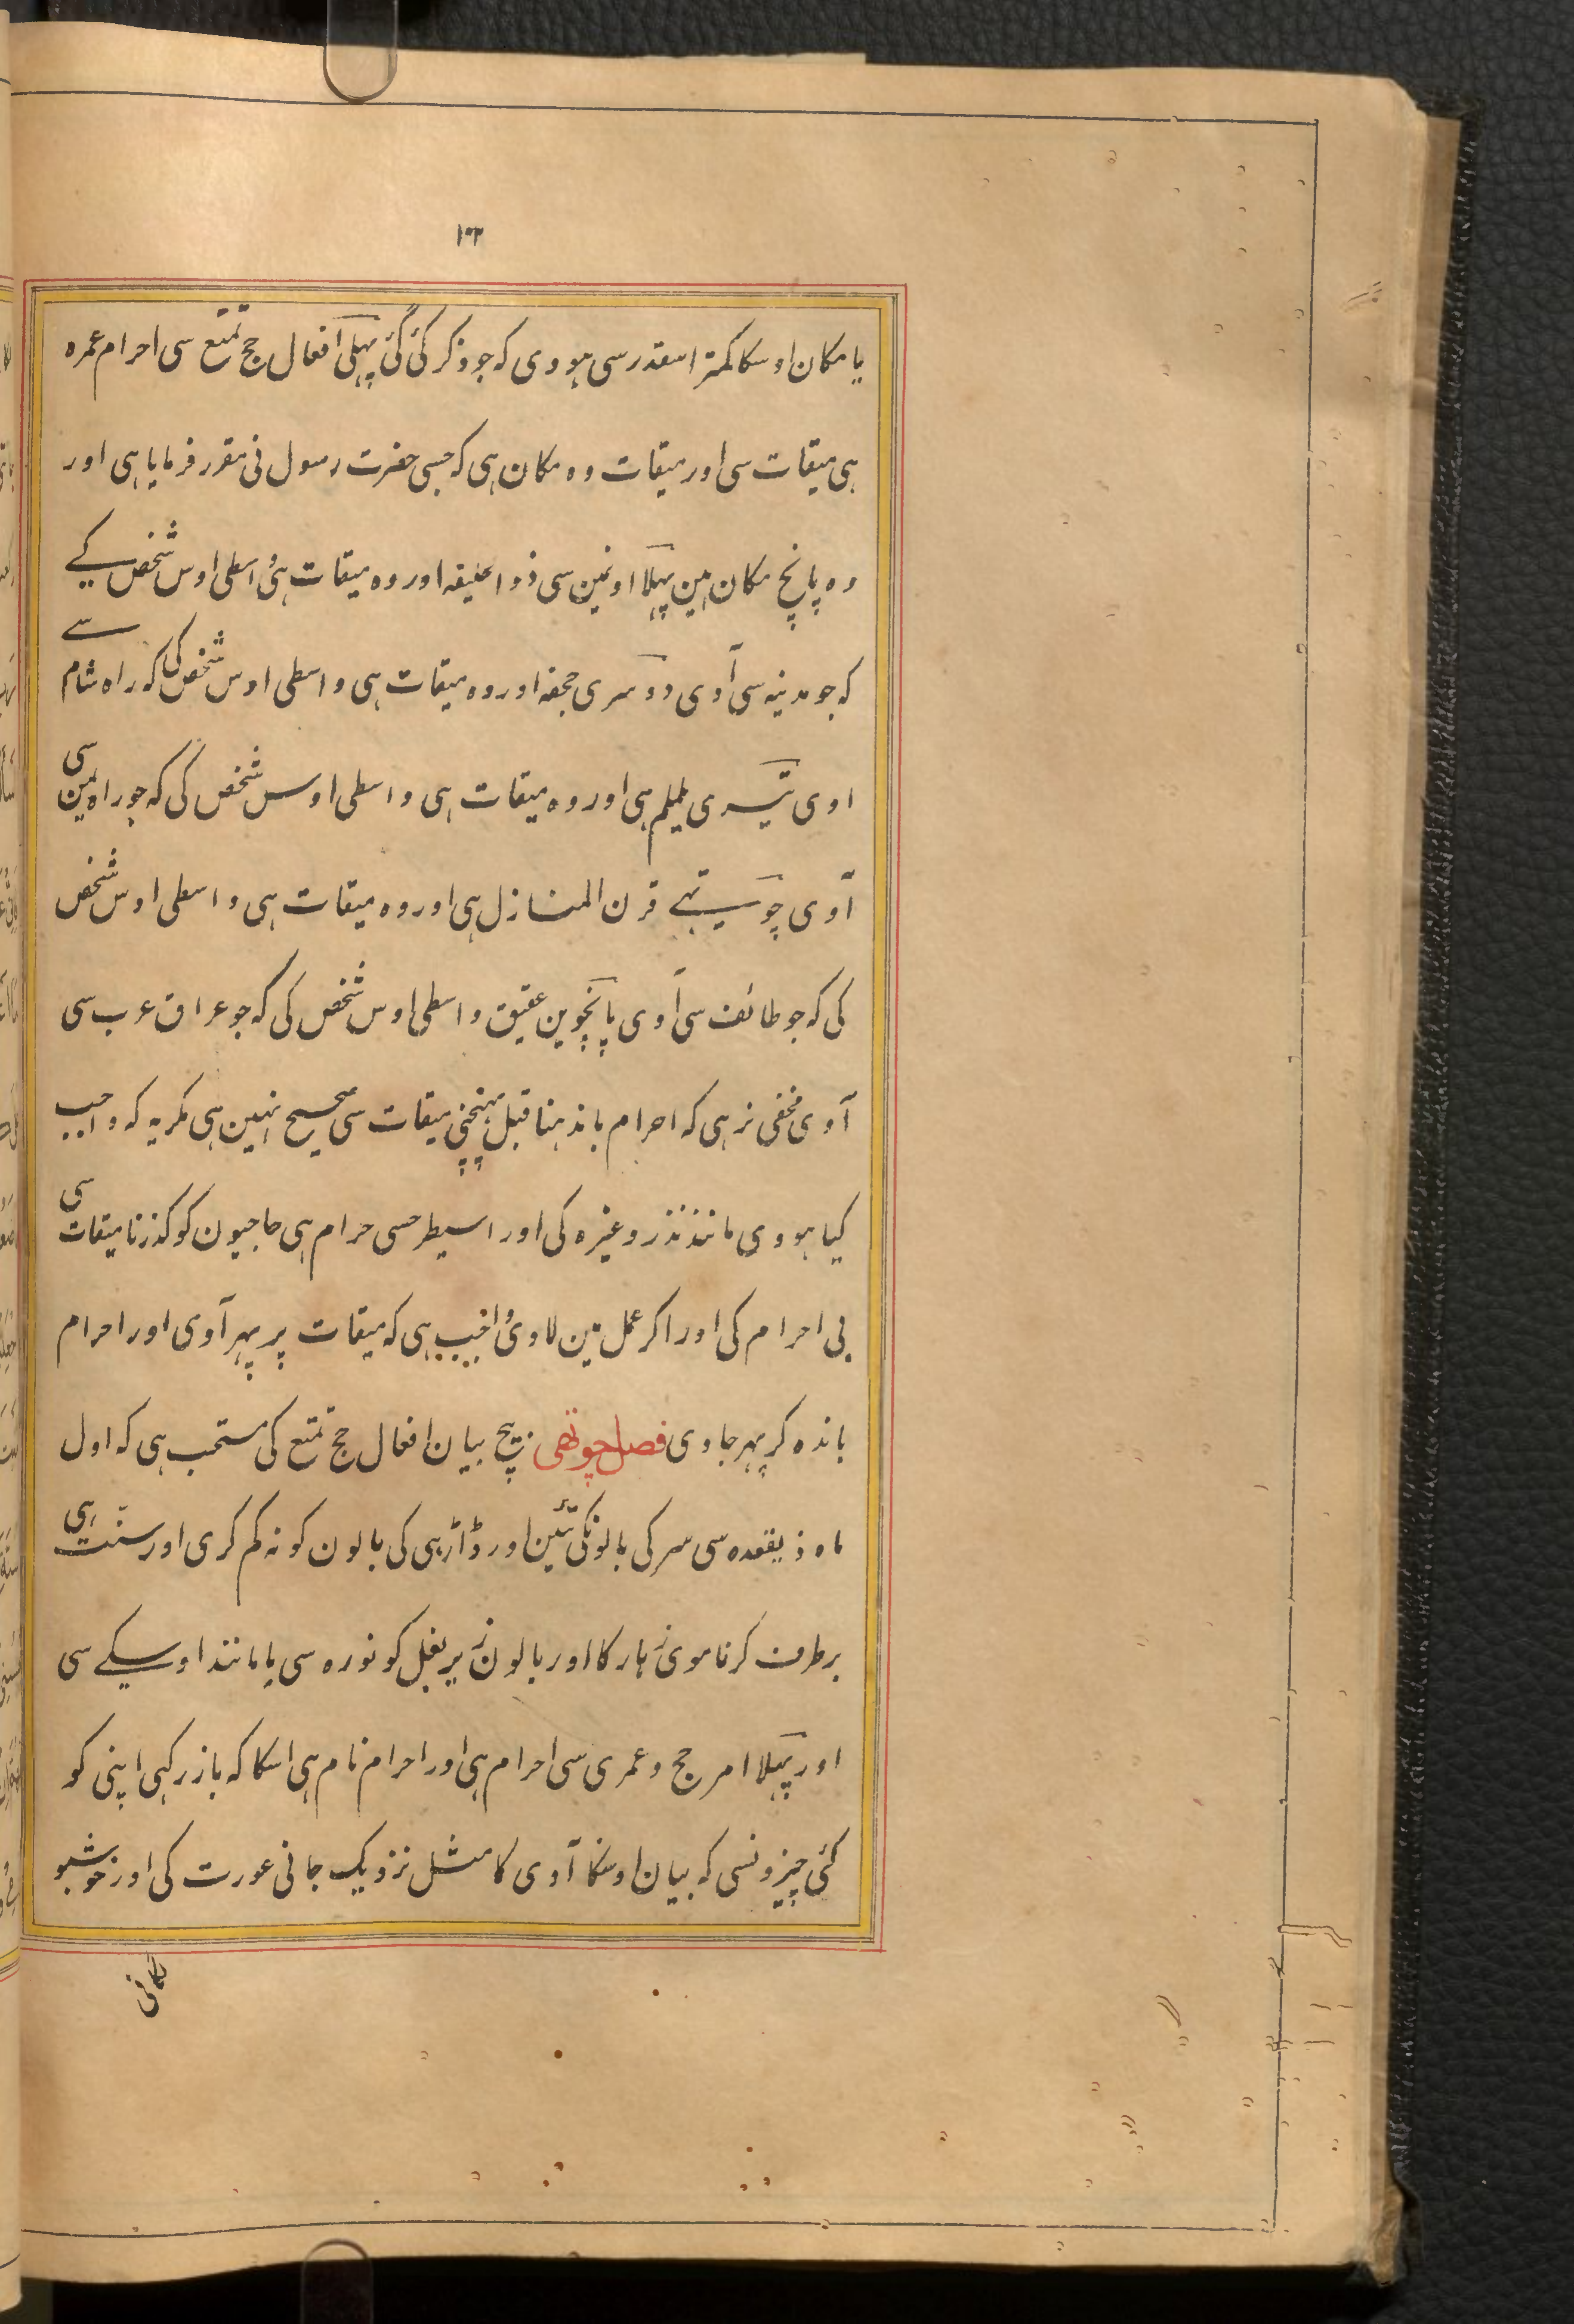 ۱۰۲
یا مکان اوسکا کمتر اسقدر سی ہووی کہ جو ذکر کئی گئی پہلی افعال حج تمتع سی احرام عمرہ
ہی میقات سی اور میقات وہ مکان ہی کہ جسی حضرت رسول نی مقرر فرمایا ہی اور
وہ پانچ مکان ہین پہلا اونمین سی ذوالحلیفہ اور وہ میقات ہی واسطی اوس شخص کے
کہ جو مدینہ سی آوی دوسری جحفہ اور وہ میقات ہی واسطی اوس شخص کی کہ راہ شام سے
اوی تیسری یلملم ہی اور وہ میقات ہی واسطی اوس شخص کی کہ جو راہ یمین سی
آوی چوتہے قرن المنازل ہی اور وہ میقات ہی واسطی اوس شخص
کی کہ جو طائف سی آوی پانچوین عقیق واسطی اوس شخص کی کہ جو عراق عرب سی
آوی مخفی نرہی کہ احرام باندہنا قبل پہنچنی میقات سی صحیح نہین ہی مکر یہ کہ واجب
کیا ہووی مانند نذر وغیرہ کی اور اسیطرحسی حرام ہی حاجیون کو کذرنا میقات سی
بی احرام کی اور اکر عمل مین لاوی واجب ہی کہ میقات پر پہر آوی اور احرام
باندہ کر پہر جاوی فصل چوتھی بیچ بیان افعال حج تمتع کی مستحب ہی کہ اول
ماہ ذیقعدہ سی سر کی بالونکی تئین اور ڈاڑہی کی بالون کو نہ کم کری اور سنت ہی
برطرف کرنا موی زہار کا اور بالون زیر بغل کو نورہ سی یا مانند اوسیکے سی
اور پہلا امر حج و عمری سی احرام ہی اور احرام نام ہی اسکا کہ باز رکہی اپنی کو
کئی چیزونسی کہ بیان اوسکا آوی کا مثل نزدیک جانی عورت کی اور خوشبو
لکانی